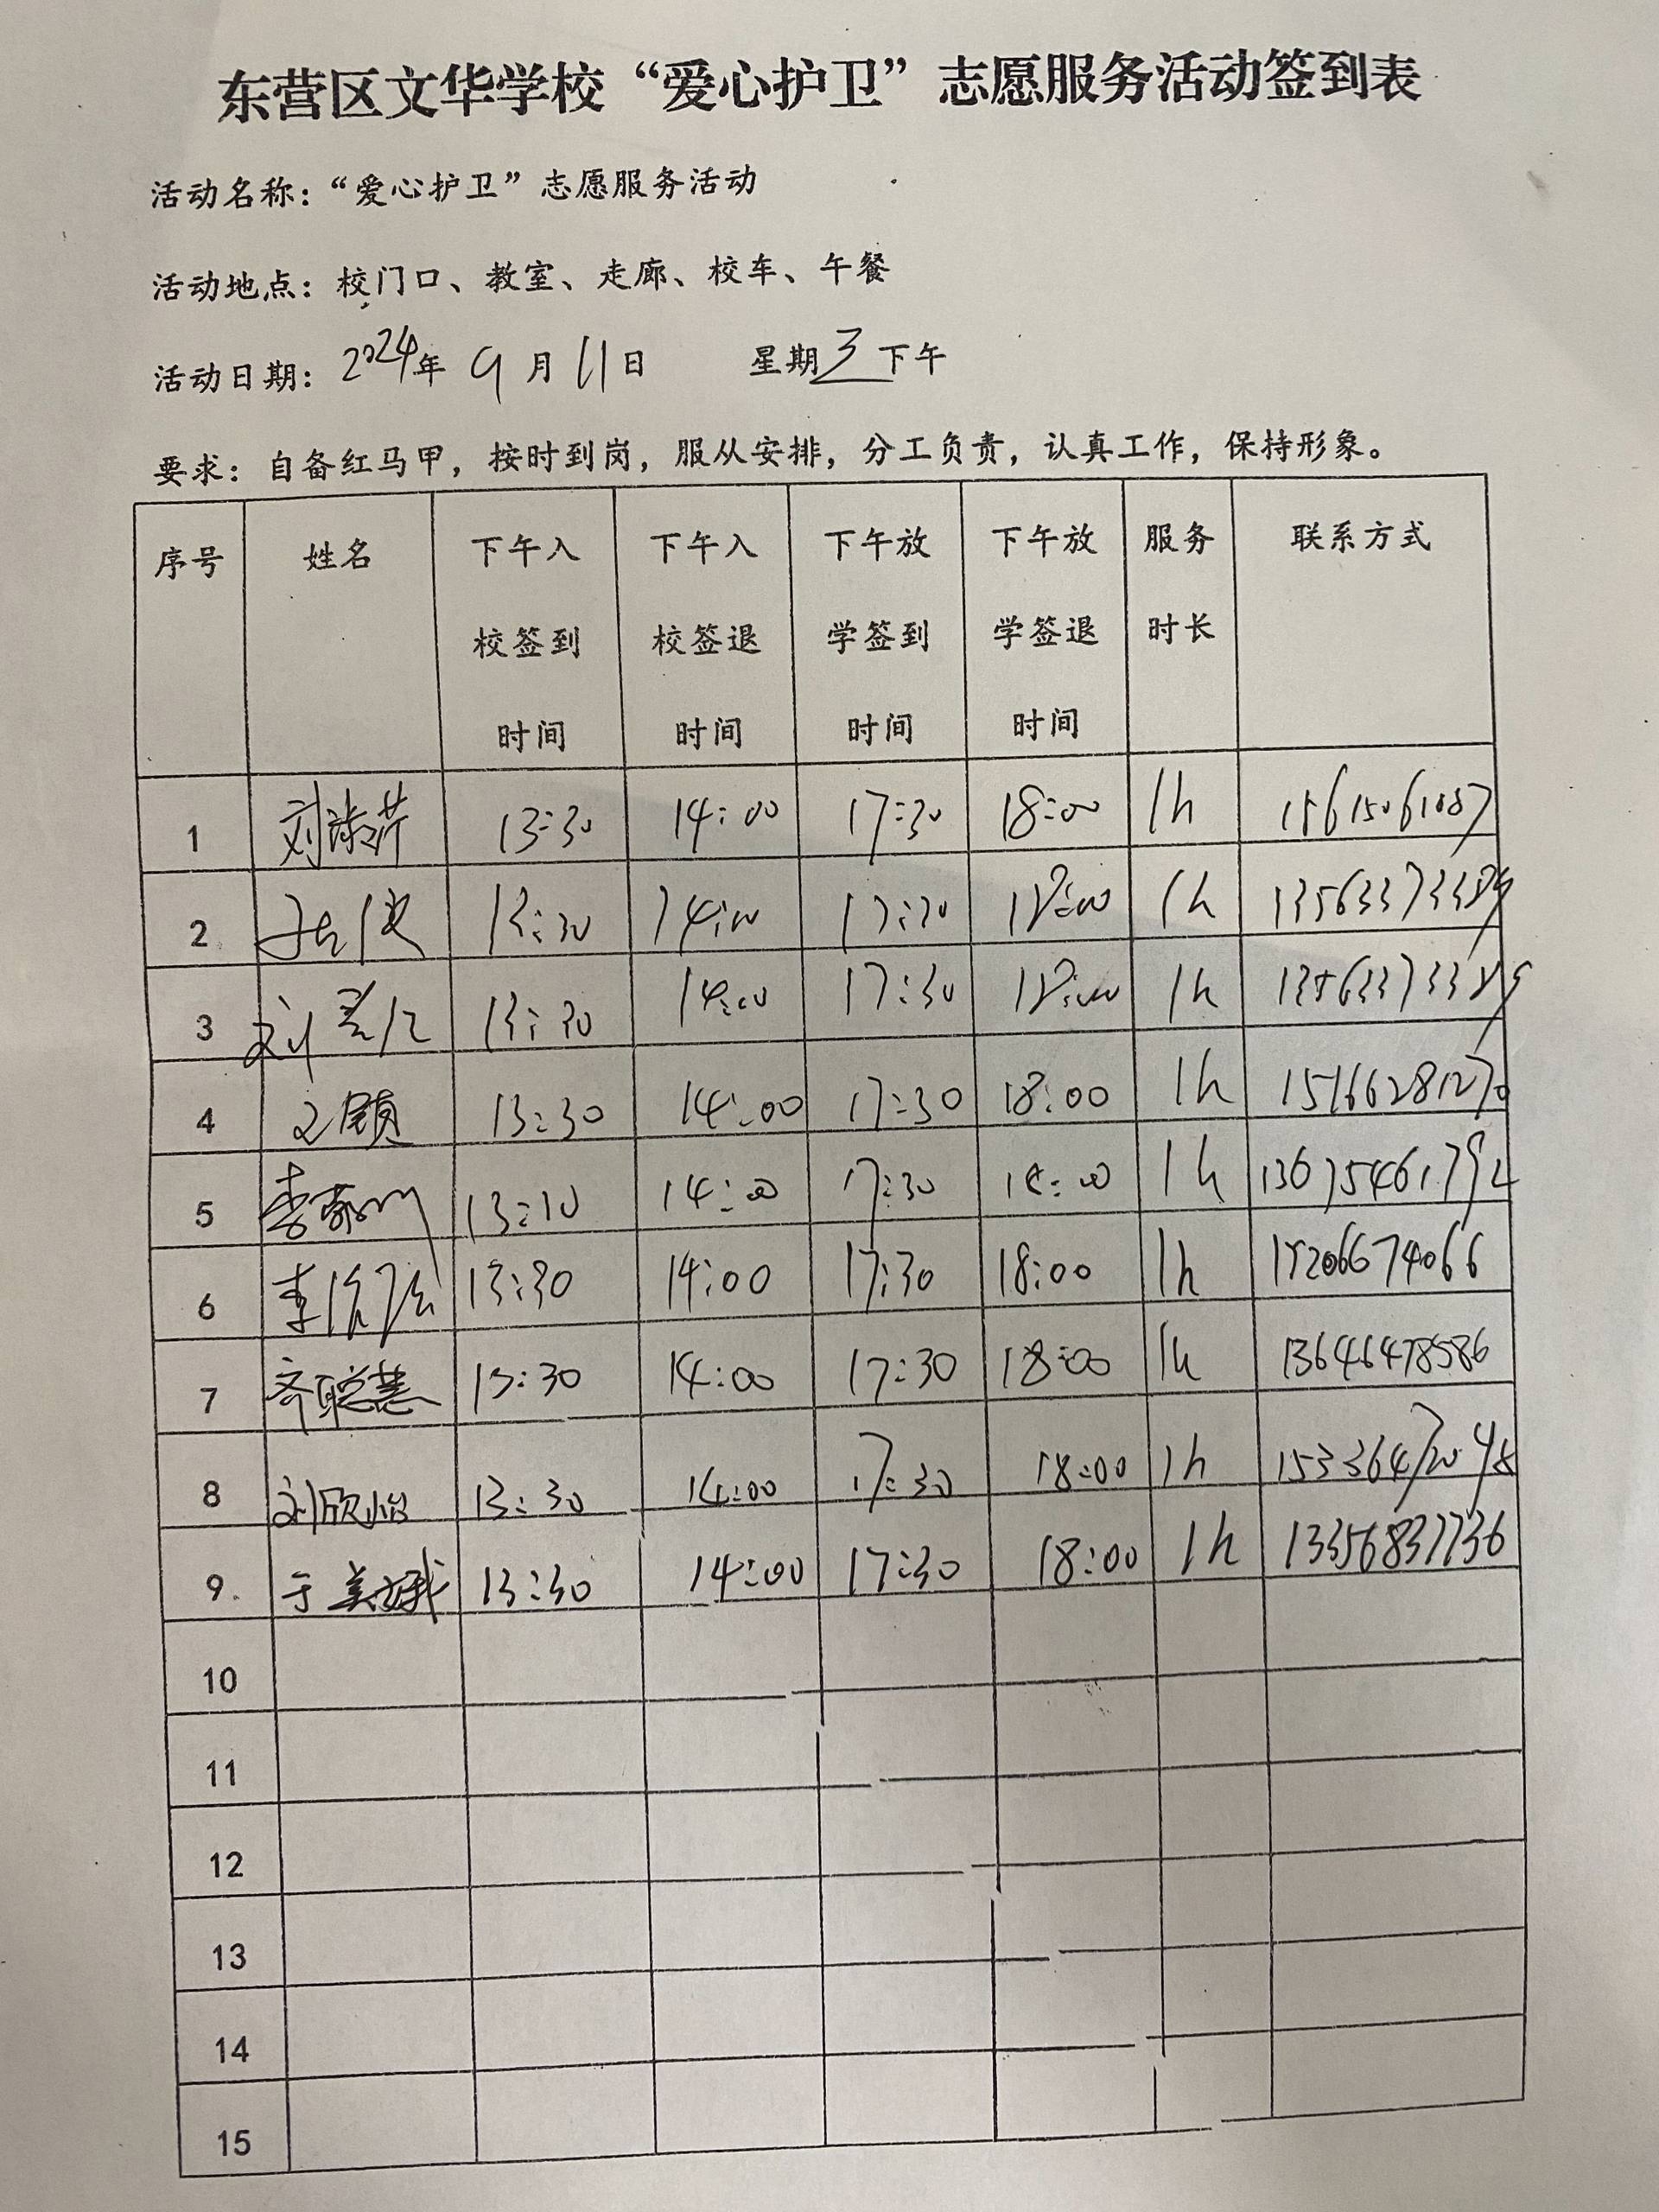 东营区文华学校“爱心护卫”志愿服务活动签到表
活动名称：“爱心护卫”志愿服务活动
活动地点：校门口、教室、走廊、校车、午餐
活动日期：2024年 9 月 11 日 星期 3 下午
要求：自备红马甲，按时到岗，服从安排，分工负责，认真工作，保持形象。
序号 姓名 下午入校签到时间 下午入校签退时间 下午放学签到时间 下午放学签退时间 服务时长 联系方式
1 刘 13:30 14:00 17:30 18:00 1h
2 13:30 14:00 17:30 18:00 1h
3 刘 13:30 14:00 17:30 18:00 1h
4 13:30 14:00 17:30 18:00 1h 15166281270
5 李 14:00 17:30 18:00 1h
6 李 13:30 14:00 17:30 18:00 1h
7 齐聪慧 13:30 14:00 17:30 18:00 1h 13646478586
8 刘欣怡 13:30 14:00 17:30 18:00 1h
9 于美娥 13:30 14:00 17:30 18:00 1h 13356837736
10
11
12
13
14
15